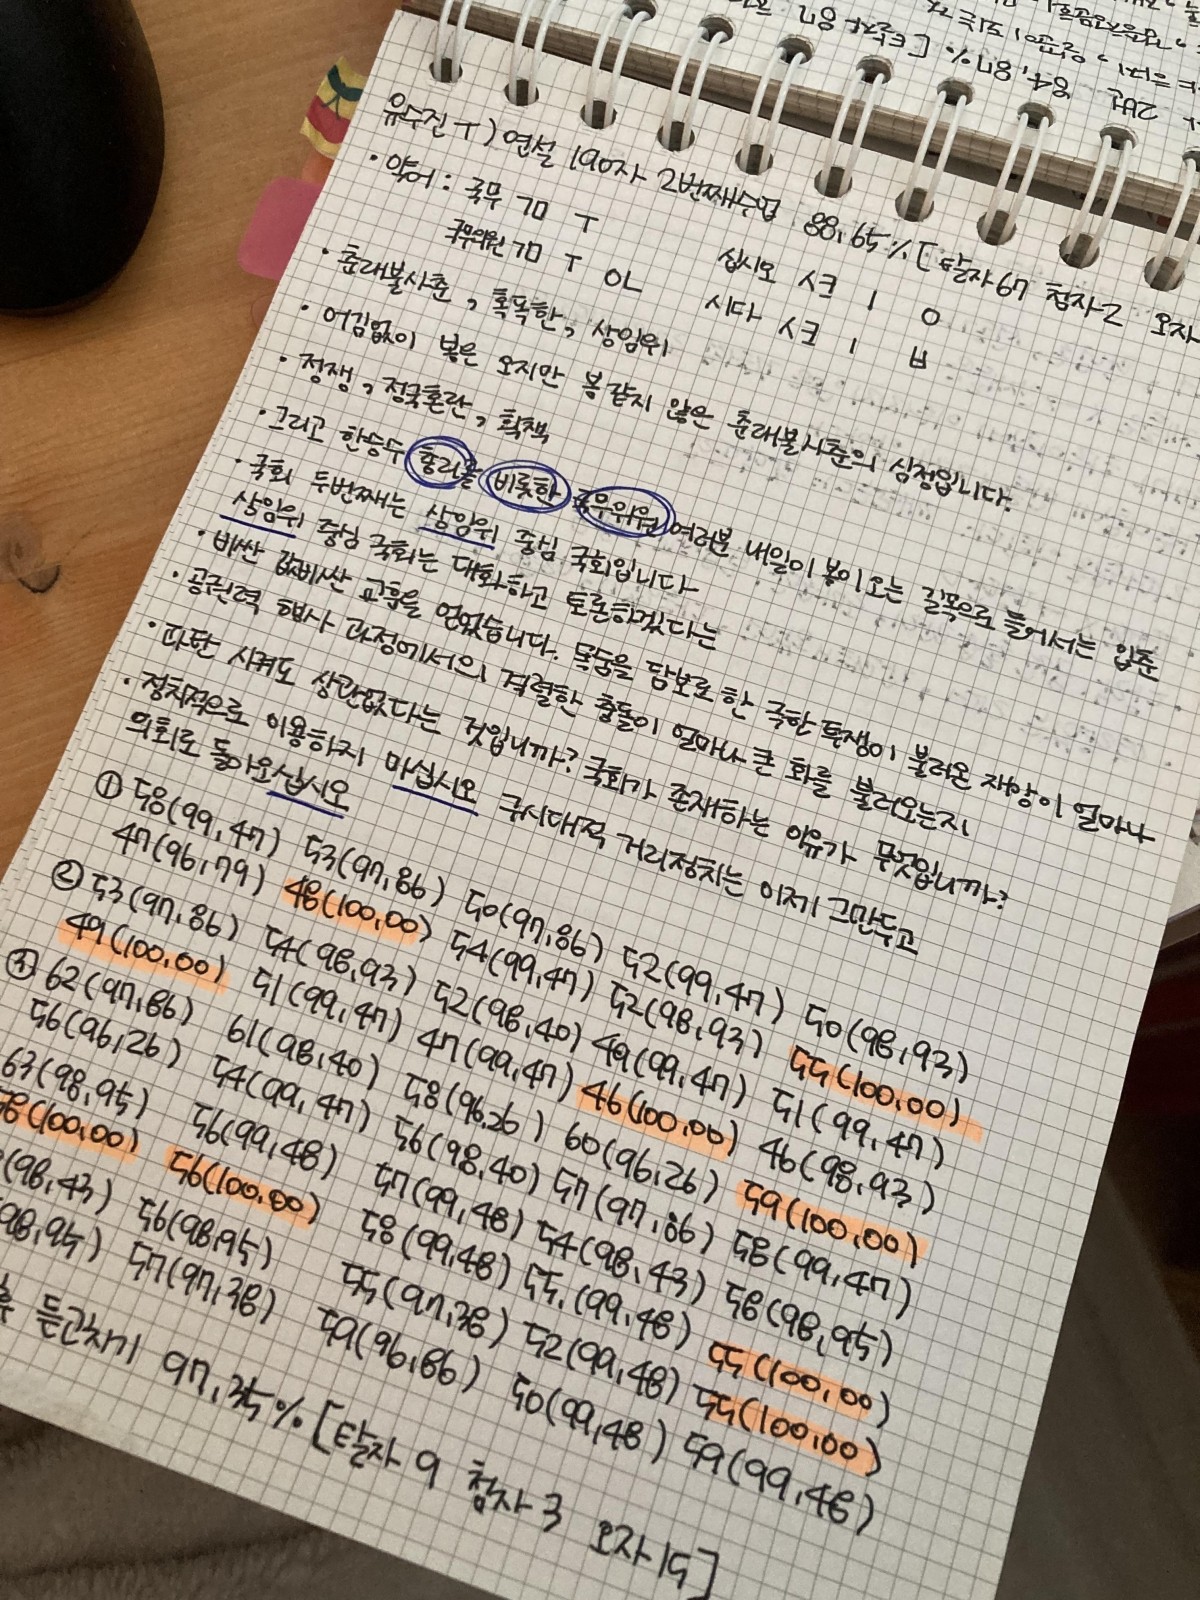 유수진T) 연설 190자 2번째수업 88,65%[탈자67 첨자2 오자
· 약어 : 국무 ㄱㅁ ㅜ 십시오 싀ㅋ ㅣ ㅇ
국무위원 ㄱㅁ ㅜ ㅇㄴ 시다 싀ㅋ ㅣ ㅂ
· 춘래불사춘, 혹독한, 상임위
· 어김없이 봄은 오지만 봄같지 않은 춘래불사춘의 심정입니다.
· 정쟁, 정국혼란, 획책
· 그리고 한승수 총리를 비롯한 국무위원 여러분 내일이 봄이 오는 길목으로 들어서는 입춘
· 국회 두번째는 상임위 중심 국회입니다
상임위 중심 국회는 대화하고 토론하겠다는
· 비싼 값비싼 교훈을 얻었습니다. 목숨을 담보로 한 극한 투쟁이 불러온 재앙이 얼마나
· 공권력 행사 과정에서의 격렬한 충돌이 얼마나 큰 화를 불러오는지
· 파탄 시켜도 상관없다는 것입니까? 국회가 존재하는 이유가 무엇입니까?
· 정치적으로 이용하지 마십시오 구시대적 거리정치는 이제 그만두고
의회로 돌아오십시오
① 58(99,47) 53(97,86) 50(97,86) 52(99,47) 50(98,93)
47(96,79) 48(100,00) 54(99,47) 52(98,93) 55(100,00)
② 53(97,86) 54(98,93) 52(98,40) 49(99,47) 51(99,47)
49(100,00) 51(99,47) 47(99,47) 46(100,00) 46(98,93)
③ 62(97,86) 61(98,40) 58(96,26) 60(96,26) 59(100,00)
56(96,26) 54(99,47) 56(98,40) 57(97,86) 58(99,47)
63(98,95) 56(99,48) 57(99,48) 54(98,43) 58(98,95)
58(100,00) 56(100,00) 58(99,48) 55(99,48) 55(100,00)
(98,43) 56(98,95) 55(97,38) 52(99,48) 55(100,00)
98,95) 57(97,38) 59(96,86) 50(99,48) 59(99,48)
후 듣고치기 97,35%[탈자9 첨자3 오자15]